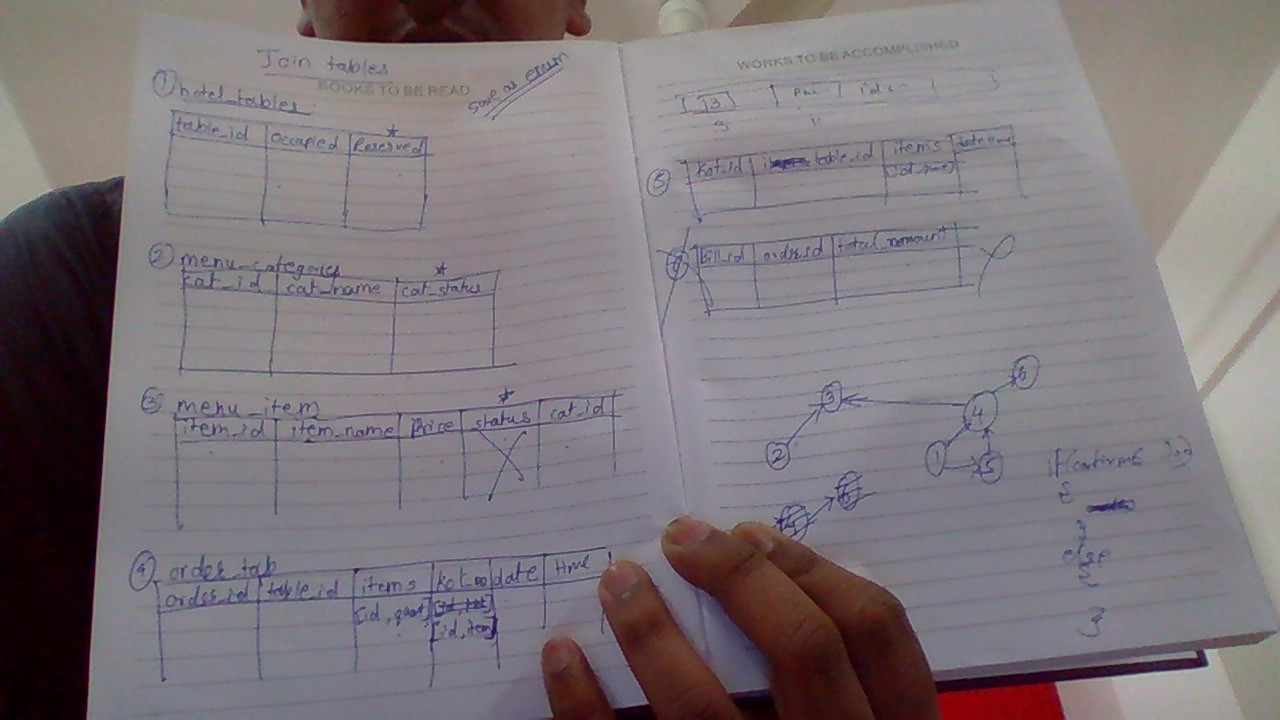 Join tables
BOOKS TO BE READ
Save as enum
① hotel_tables
table_id occupied Reserved
②
menu_category
cat_id cat_name cat_status
③ menu_item
item_id item_name Price status cat_id
④ order_tab
order_id table_id items kot_no date time
[id, quat]
[id, item]
WORKS TO BE ACCOMPLISHED
⑤ Kot_id table_id items
Bill_id order_id total_ammount
③ ⑤
④
② ① ⑤
{
}
else
{
}